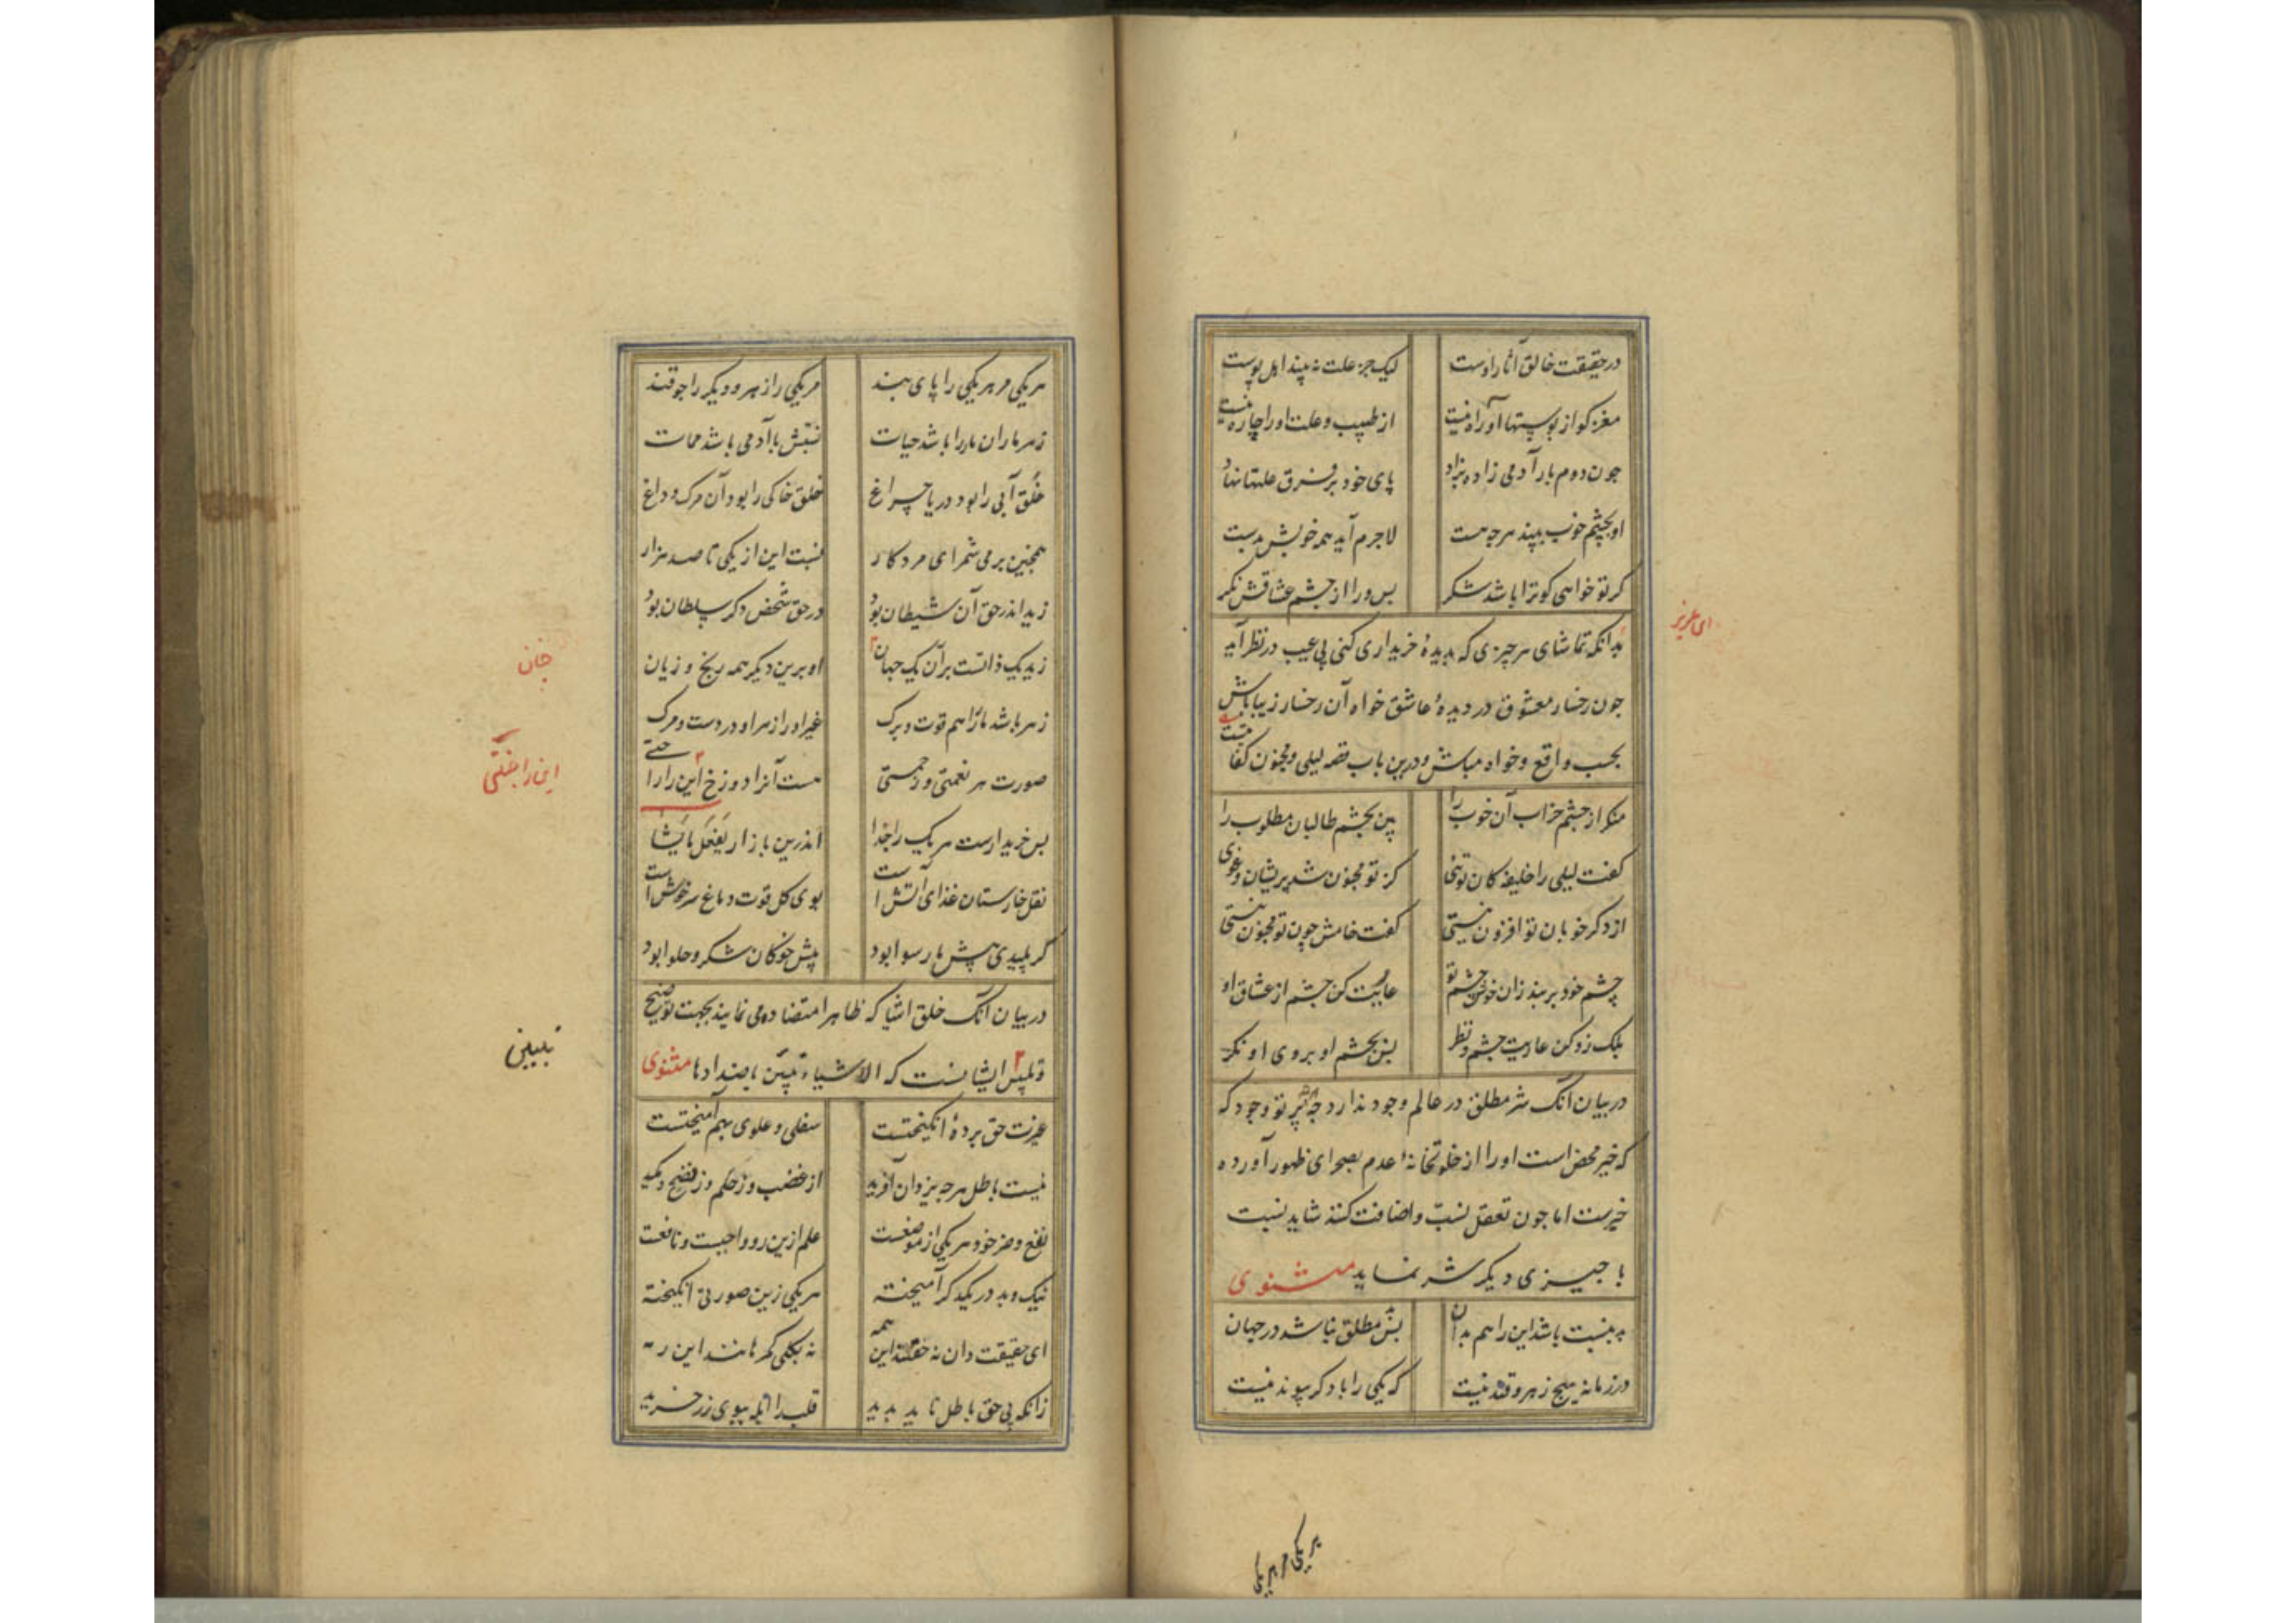 در حقیقت خالق آثار اوست لیک جز علت نه بیند اهل پوست
مغز کو از پوستها آواره نیست از طبیب و علت او را چاره نیست
چون دوم بار آدمی زاده بزاد پای خود بر فرق علتها نهاد
او بچشم خوب بیند هر چه هست لاجرم آید همه خوبش بدست
کر تو خواهی کو ترا باشد شکر بس ورا از چشم عشاقش نکر
ای عزیز
بدانکه تماشای هر چیزی که بدیدهٔ خریداری کنی بی عیب در نظر آید
جون رخسار معشوق در دیدهٔ عاشق خواه آن رخسار زیبا باش
بحسب واقع و خواه مباش و درین باب قصه لیلی و مجنون کفا
منکر از جشم خراب آن خوب را بین بچشم طالبان مطلوب را
کفت لیلی را خلیفه کان توئی کز تو مجنون شد پریشان و غوی
از دکر خوبان تو افزون نیستی کفت خامش چون تو مجنون نیستی
چشم خود بربند زان خوش چشم تو عاریت کن چشم از عشاق او
بلک زو کن عاریت چشم و نظر بس بچشم او بروی او نکر
در بیان آنک شر مطلق در عالم وجود ندارد چه پرتو وجود که
که خیر محض است او را از خلوتخانهٔ عدم بصحرای ظهور آورده
خیرست اما جون تعقل نسب و اضافت کنند شاید نسبت
با جیزی دیکر شر نماید مثنوی
بس بد مطلق نباشد در جهان بد بنسبت باشد این را هم بدان
در زمانه هیچ زهر و قند نیست که یکی را با دکر پیوند نیست
هر یکی مر هر یکی
هر یکی مر هر یکی را پای بند مر یکی را زهر و دیکر را جو قند
زهر ماران مار را باشد حیات نسبتش با آدمی باشد ممات
خلق آبی را بود دریا چو باغ خلق خاکی را بود آن مرک و داغ
همچنین بر می شمر ای مرد کار نسبت این از یکی تا صد هزار
زید اندر حق آن شیطان بود در حق شخص دکر سلطان بود
زید یک ذاتست بر آن یک جهان او برین دیکر همه رنج و زیان
جان
زهر باشد مار را هم قوت و برک غیر او را زهر او دردست و مرک
صورت هر نعمتی و رحمتی هست آنرا دوزخ این را را حتی
این را جنتی
بس خریدارست هر یک را جدا اندرین بازار یفعل ما یشا
نقل خارستان غذای آتش است بوی کل قوت دماغ سرخوش است
کر پلیدی پیش ما رسوا بود پیش خوکان شکر و حلوا بود
در بیان آنک خلق اشیا که ظاهرا متضاد می نمایند بجهت توضیح
تبیین
ایشانست که الاشیاء تبین باضدادها مثنوی
غیرت حق بردهٔ انکیختست سفلی و علوی بهم آمیختست
نیست باطل هرچه یزدان آفرید از غضب وز حکم وز نصح و مکید
نفع و ضر خود هر یکی از موضعست علم ازین رو واجبست و نافعست
نیک و بد در یکدکر آمیخته هر یکی زین صورتی انکیخته
ای حقیقت دان نه حقند این همه نه بکلی کمرهانند این رمه
زانکه بی حق باطل ناید بدید قلب را ابله ببوی زر خرید